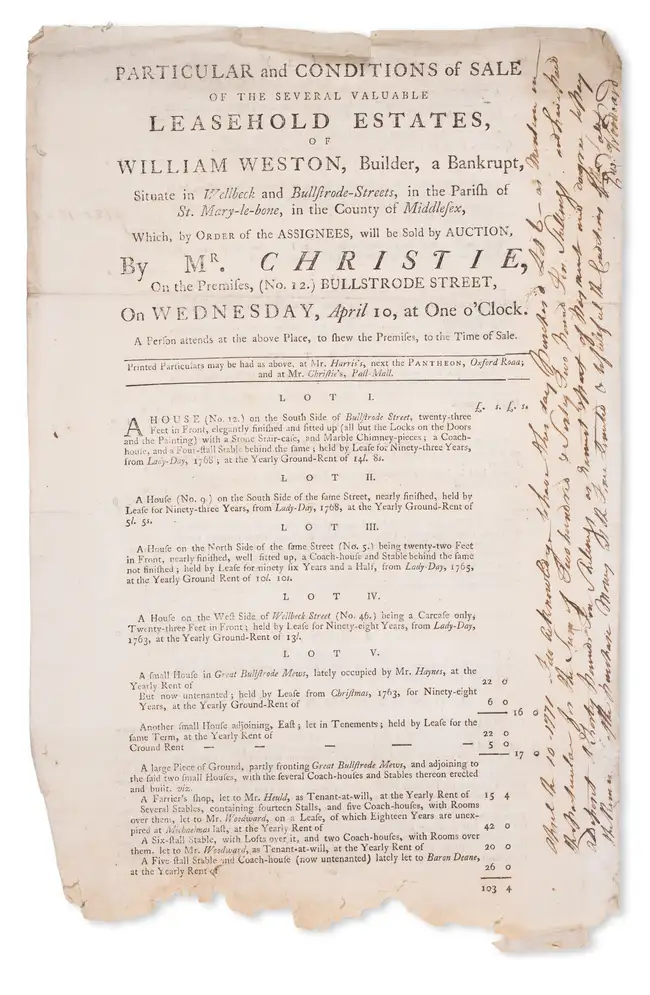 PARTICULAR and CONDITIONS of SALE
OF THE SEVERAL VALUABLE
LEASEHOLD ESTATES,
OF
WILLIAM WESTON, Builder, a Bankrupt,
Situate in Wellbeck and Bullſtrode-Streets, in the Pariſh of
St. Mary-le-bone, in the County of Middleſex,
Which, by ORDER of the ASSIGNEES, will be Sold by AUCTION,
By MR. CHRISTIE,
On the Premiſes, (No. 12.) BULLSTRODE STREET,
On WEDNESDAY, April 10, at One o'Clock.
A Perſon attends at the above Place, to ſhew the Premiſes, to the Time of Sale.
Printed Particulars may be had as above, at Mr. Harris's, next the PANTHEON, Oxford Road;
and at Mr. Chriſtie's, Pall-Mall.
LOT I.
£. s. £. s.
A HOUSE (No. 12.) on the South Side of Bullſtrode Street, twenty-three
Feet in Front, elegantly finiſhed and fitted up (all but the Locks on the Doors
and the Painting) with a Stone Stair-caſe, and Marble Chimney-pieces; a Coach-
houſe, and a Four-ſtall Stable behind the ſame; held by Leaſe for Ninety-three Years,
from Lady-Day, 1768; at the Yearly Ground-Rent of 14l. 8s.
LOT II.
A Houſe (No. 9.) on the South Side of the ſame Street, nearly finiſhed, held by
Leaſe for Ninety-three Years, from Lady-Day, 1768, at the Yearly Ground-Rent of
5l. 5s.
LOT III.
A Houſe on the North Side of the ſame Street (No. 5.) being twenty-two Feet
in Front, nearly finiſhed, well fitted up, a Coach-houſe and Stable behind the ſame
not finiſhed; held by Leaſe for ninety ſix Years and a Half, from Lady-Day, 1765,
at the Yearly Ground Rent of 10l. 10s.
LOT IV.
A Houſe on the Weſt Side of Wellbeck Street (No. 46.) being a Carcaſe only,
Twenty-three Feet in Front; held by Leaſe for Ninety-eight Years, from Lady-Day,
1763, at the Yearly Ground-Rent of 13l.
LOT V.
A ſmall Houſe in Great Bullſtrode Mews, lately occupied by Mr. Haynes, at the
Yearly Rent of 22 0
But now untenanted; held by Leaſe from Chriſtmas, 1763, for Ninety-eight
Years, at the Yearly Ground-Rent of 6 0
16 0
Another ſmall Houſe adjoining, Eaſt; let in Tenements; held by Leaſe for the
ſame Term, at the Yearly Rent of 22 0
Ground Rent — — — — — 5 0
17 0
A large Piece of Ground, partly fronting Great Bullſtrode Mews, and adjoining to
the ſaid two ſmall Houſes, with the ſeveral Coach-houſes and Stables thereon erected
and built. viz.
A Farrier's ſhop, let to Mr. Heuld, as Tenant-at-will, at the Yearly Rent of 15 4
Several Stables, containing fourteen Stalls, and five Coach-houſes, with Rooms
over them, let to Mr. Woodward, on a Leaſe, of which Eighteen Years are unex-
pired at Michaelmas laſt, at the Yearly Rent of 42 0
A Six-ſtall Stable, with Lofts over it, and two Coach-houſes, with Rooms over
them. let to Mr. Woodward, as Tenant-at-will, at the Yearly Rent of 20 0
A Five ſtall Stable and Coach-houſe (now untenanted) lately let to Baron Deane,
at the Yearly Rent of 26 0
103 4
April the 10 1777 I do acknowledge to have this day Purchased Lot 6 as mention in
the Particular for the Sum of Two hundred & Sixty Two Pound Ten Shillings and have Paid
Deposit Pound Ten Shillings as in part of Payment and do agree to Pay
the Remainder of the Purchase Money at the Time limited Conditions of Sale
Woodward